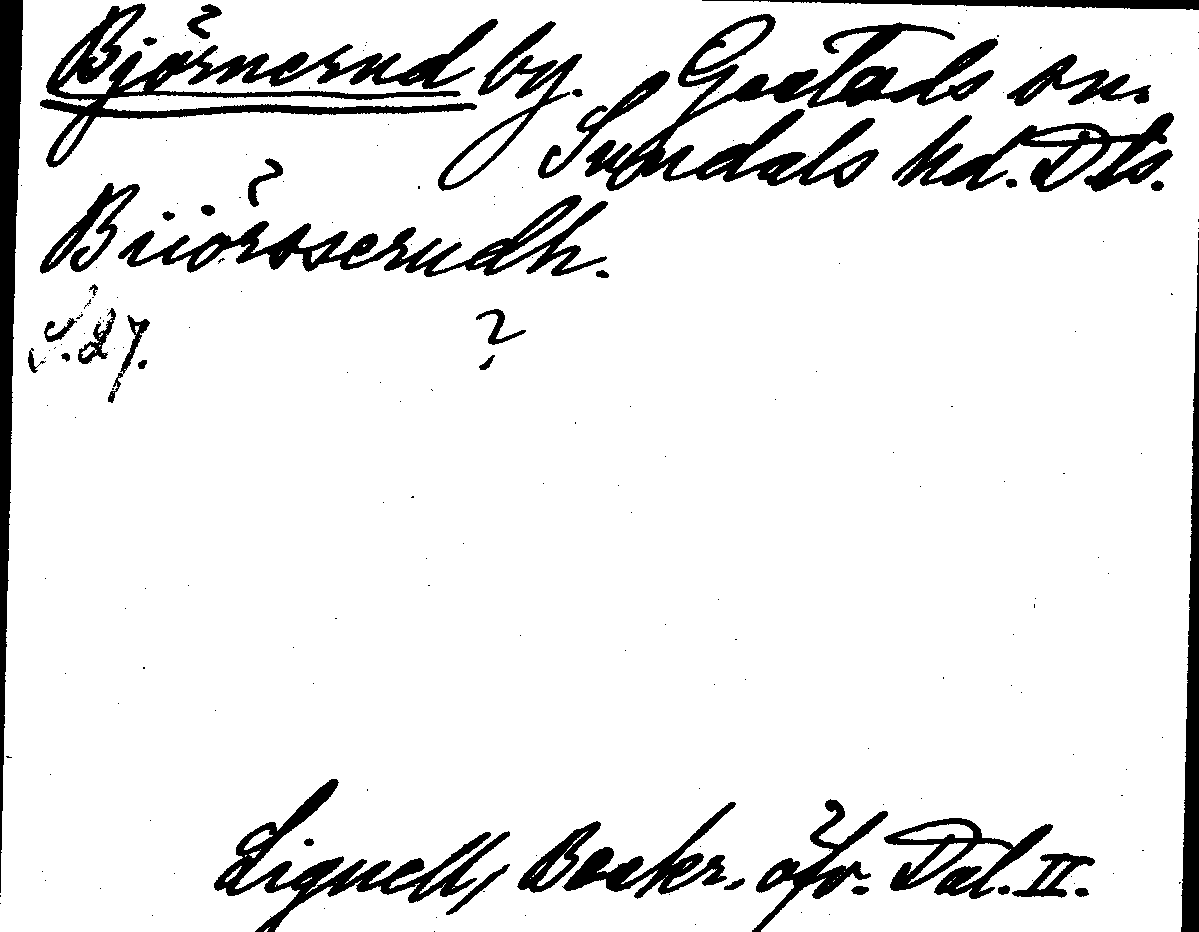 Björnerud by. Gestads sn.
Sundals hd. Dls.
Biiörsserudh.
S. 27. ?
Lignell, Beskr. öfv. Dal. II.